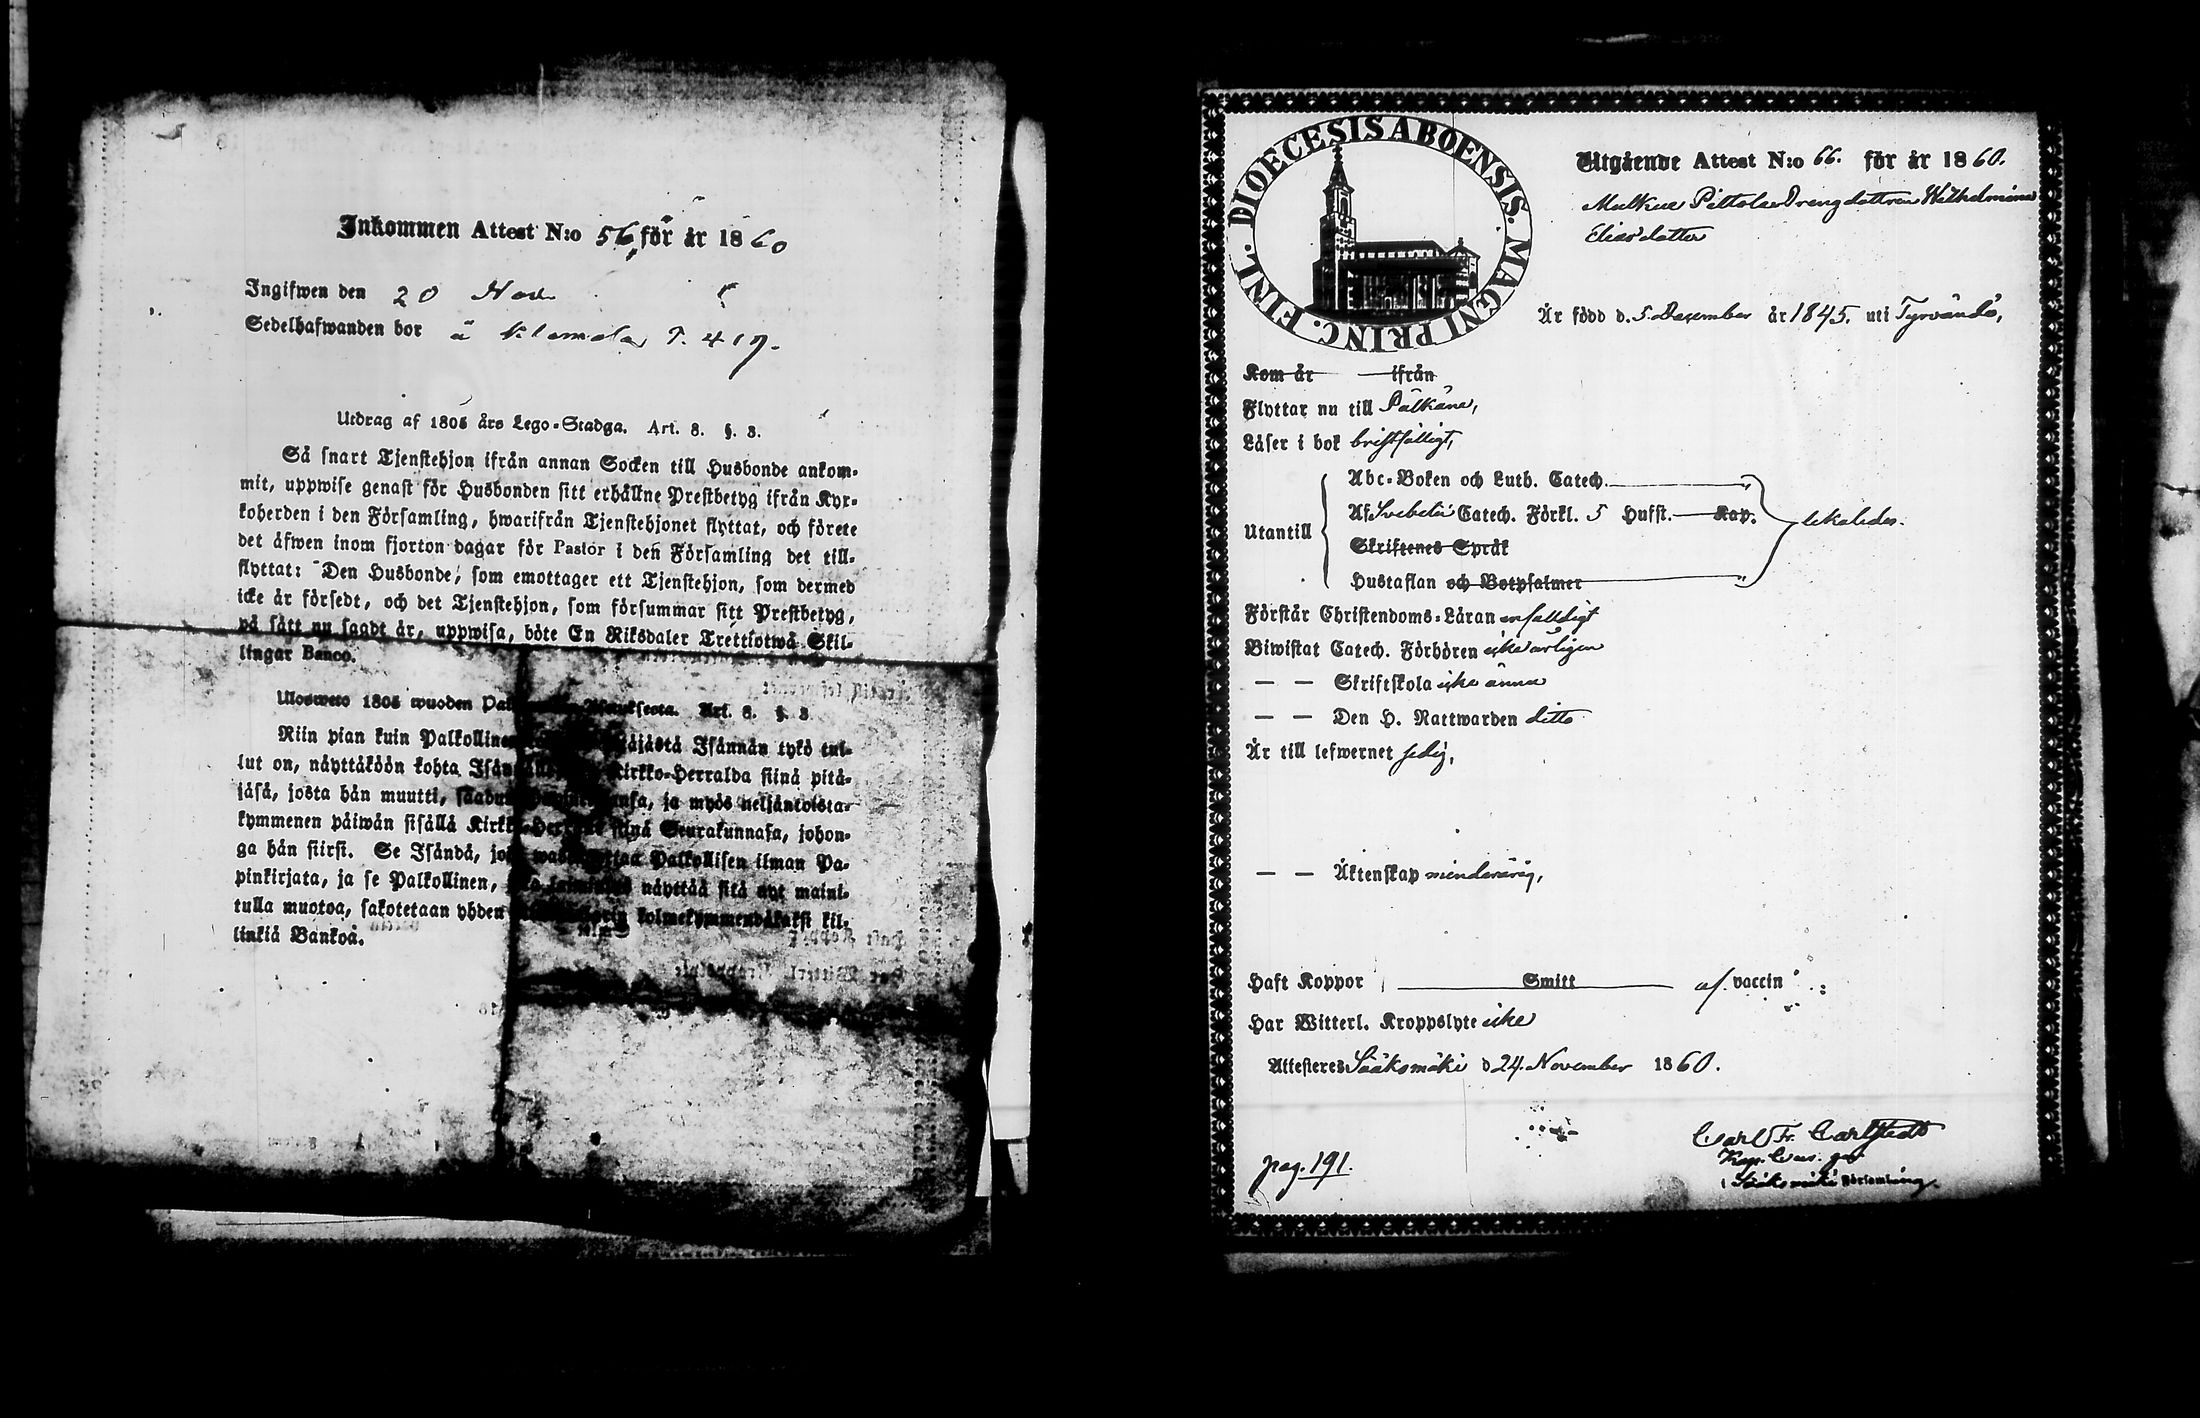 Inkommen Attest N:o 56, för år 1860
Ingifwen den 20 Nov.
Sedelhafwanden bor å Klemola P. 417.
Utdrag af 1805 års Lego-Stadga. Art. 8. §. 3.
Så snart Tjenstehjon ifrån annan Socken till Husbonde ankom-
mit, uppwise genast för Husbonden sitt erhållne Prestbetyg ifrån Kyr-
koherden i den Församling, hwarifrån Tjenstehjonet flyttat, och förete
det äfwen inom fjorton dagar för Pastor i den Församling det till-
flyttat: Den Husbonde, som emottager ett Tjenstehjon, som dermed
icke är försedt, och det Tjenstehjon, som försummar sitt Prestbetyg,
på sätt nu sagdt är, uppwisa, böte En Riksdaler Trettiotwå Skil-
lingar Banco.
Ulosweto 1805 wuoden Art. 8. §. 3
Niin pian kuin Palkollinen Isännän tykö tul-
lut on, näyttäköön kohta Kirkko-Herralda siinä pitä-
jäsä, josta hän muutti, ja myös neljäntoista-
kymmenen päiwän sisällä Kirkko-Herralle siinä Seurakunnasa, johon-
ga hän siirsi. Se Isändä, joka wastanottaa Palkollisen ilman Pa-
pinkirjata, ja se Palkollinen, näyttää sitä nyt maini-
tulla muotoa, sakotetaan yhden kolmekymmendäkaksi kil-
linkiä Bankoa.
FINL. DIOECESIS ABOENSIS. MAGNI PRINC.
Utgående Attest N:o 66. för år 1860.
Mulkue Pittola Drengdottren Wilhelmina
Eliasdotter
Är född d. 5 December år 1845. uti Tyrvändö,
Kom år ifrån
Flyttar nu till Pälkäne,
Läser i bok bristfälligt,
Abc-Boken och Luth. Catech. "
Utantill Af Svebelii Catech. Förkl. 5 Hufst. Kap. likaledes.
Skriftenes Språk
Hustaflan och Botpsalmer "
Förstår Christendoms-Läran enfaldigt
Biwistat Catech. Förhören icke årligen
— — Skriftskola icke ännu
— — Den H. Nattwarden ditto
Är till lefwernet sedig,
— — Äktenskap minderårig,
Haft Koppor Smitt af vaccin
Har Witterl. Kroppslyte icke
Attesteres Sääksmäki d 24. November 1860.
Carl Fr. Carlstedt
Kap.
i Sääksmäki Församling.
pag. 191.